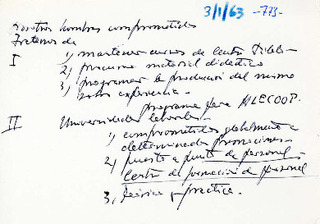 3/1/63 -773-
Nosotros hombres comprometidos
Tratemos de
I 1) mantener cursos de
2) procurar material didáctico
3) programar la producción del mismo
experiencia.
programa para ALECOOP.
II Universidades laborales.
1) comprometidos globalmente a
determinadas promociones.
2) puesta a punto de personal.
Centro de formación de personal
3) teórico y práctica.